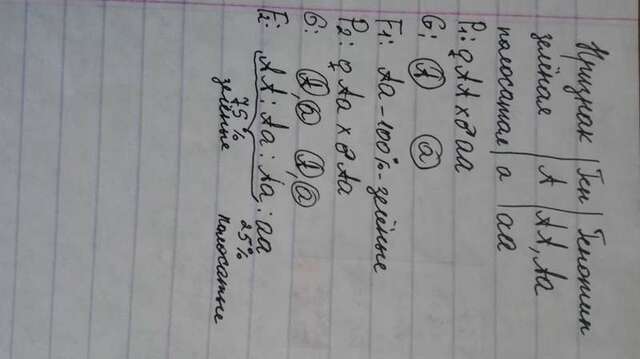 Признак | Ген | Генотип
зелёная | А | АА, Аа
полосатая | а | аа
P₁: ♀ АА × ♂ аа
G: (А) (а)
F₁: Аа - 100% - зелёные
P₂: ♀ Аа × ♂ Аа
G: (А) (а) (А), (а)
F₂: АА : Аа : Аа : аа
75% 25%
зелёные полосатые